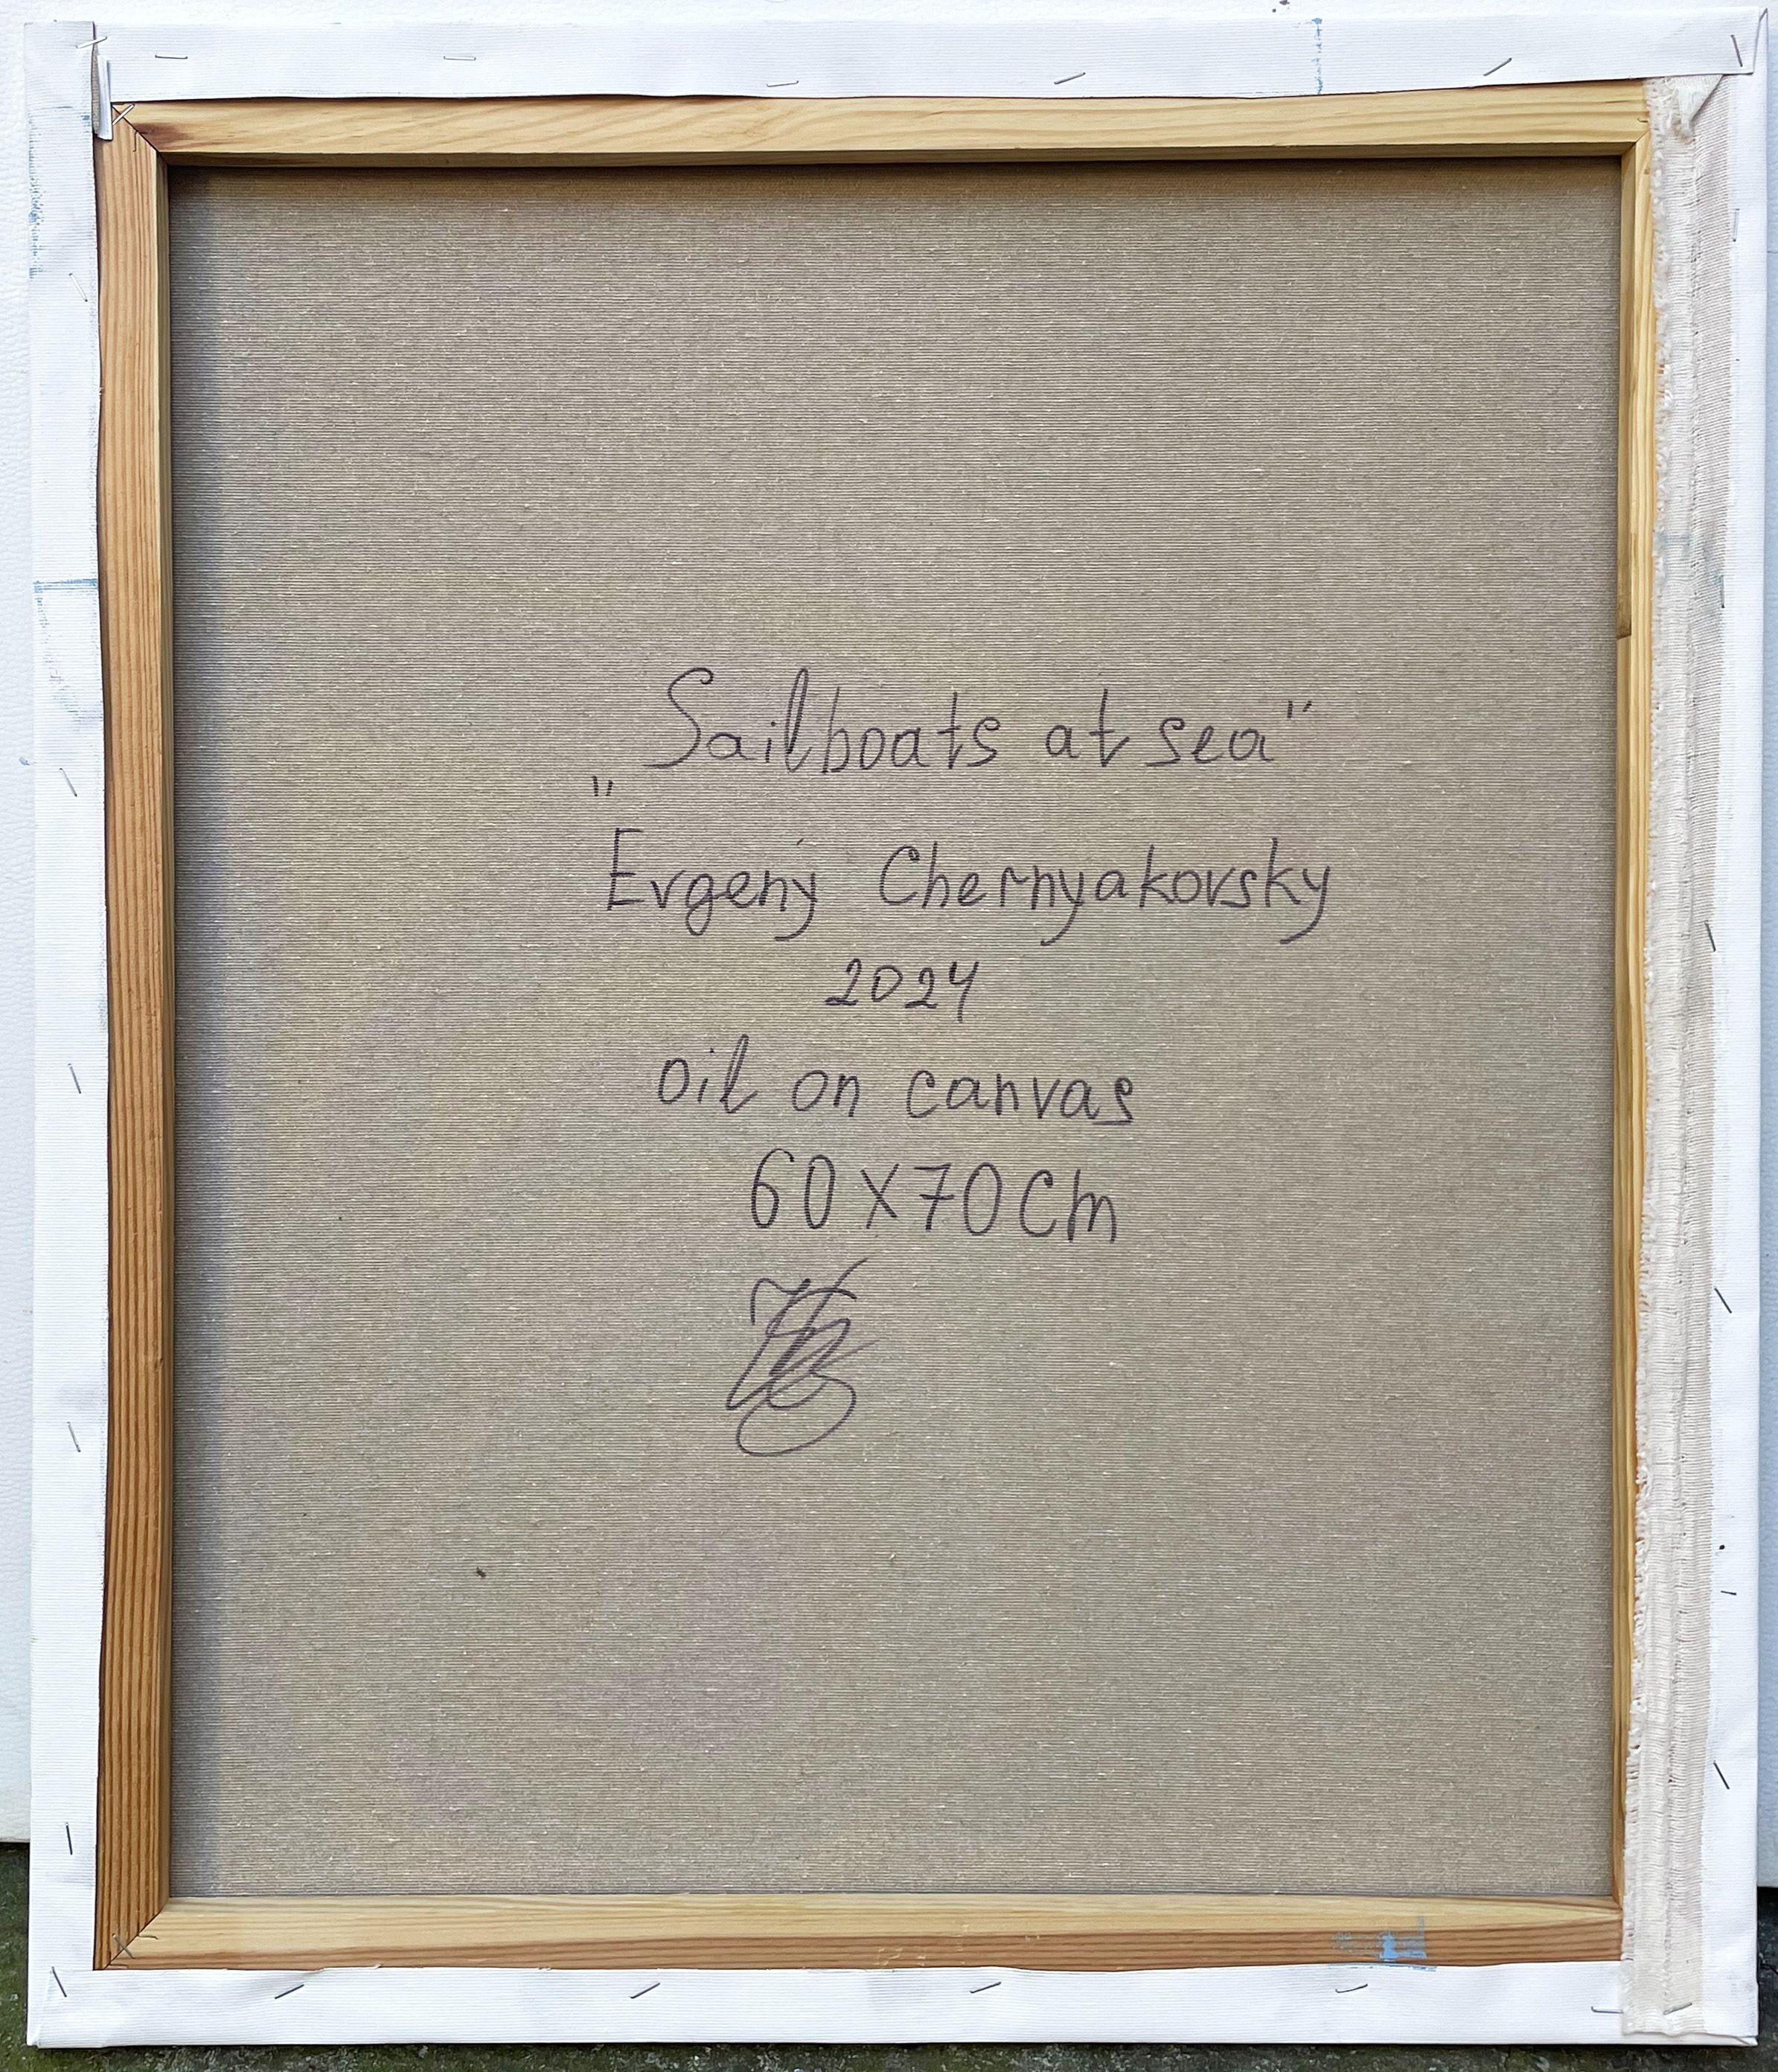 "Sailboats at sea"
Evgeny Chernyakovsky
2024
oil on canvas
60x70cm